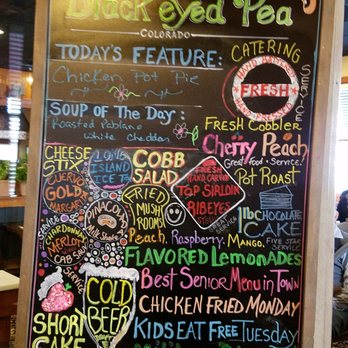 Black eyed Pea
COLORADO
TODAY'S FEATURE:
Chicken Pot Pie
SOUP OF THE DAY:
Roasted Poblano
White Cheddar
CATERING
HAND BATTERED
FRESH
Fresh Cobbler
Cherry Peach
Great food • Service
Pot Roast
CHEESE
STIX
LONG
ISLAND
ICE TEA
COBB
SALAD
FRESH
HAND CARVED
TOP SIRLOIN
RIBEYES
CUERVO
GOLD
MARGARITA
PINA COLADA
Milk Shake
FRIED
MUSH
ROOMS
CHOCOLATE
CAKE
FIVE STAR
SERVICE
CHARDONNAY
MERLOT
CAB SAV
Peach, Raspberry, Mango,
FLAVORED LEMONADES
Best Senior Menu in Town
COLD
BEER
DRAFT
CHICKEN FRIED MONDAY
SHORT
CAKE
KIDS EAT FREE TUESDAY